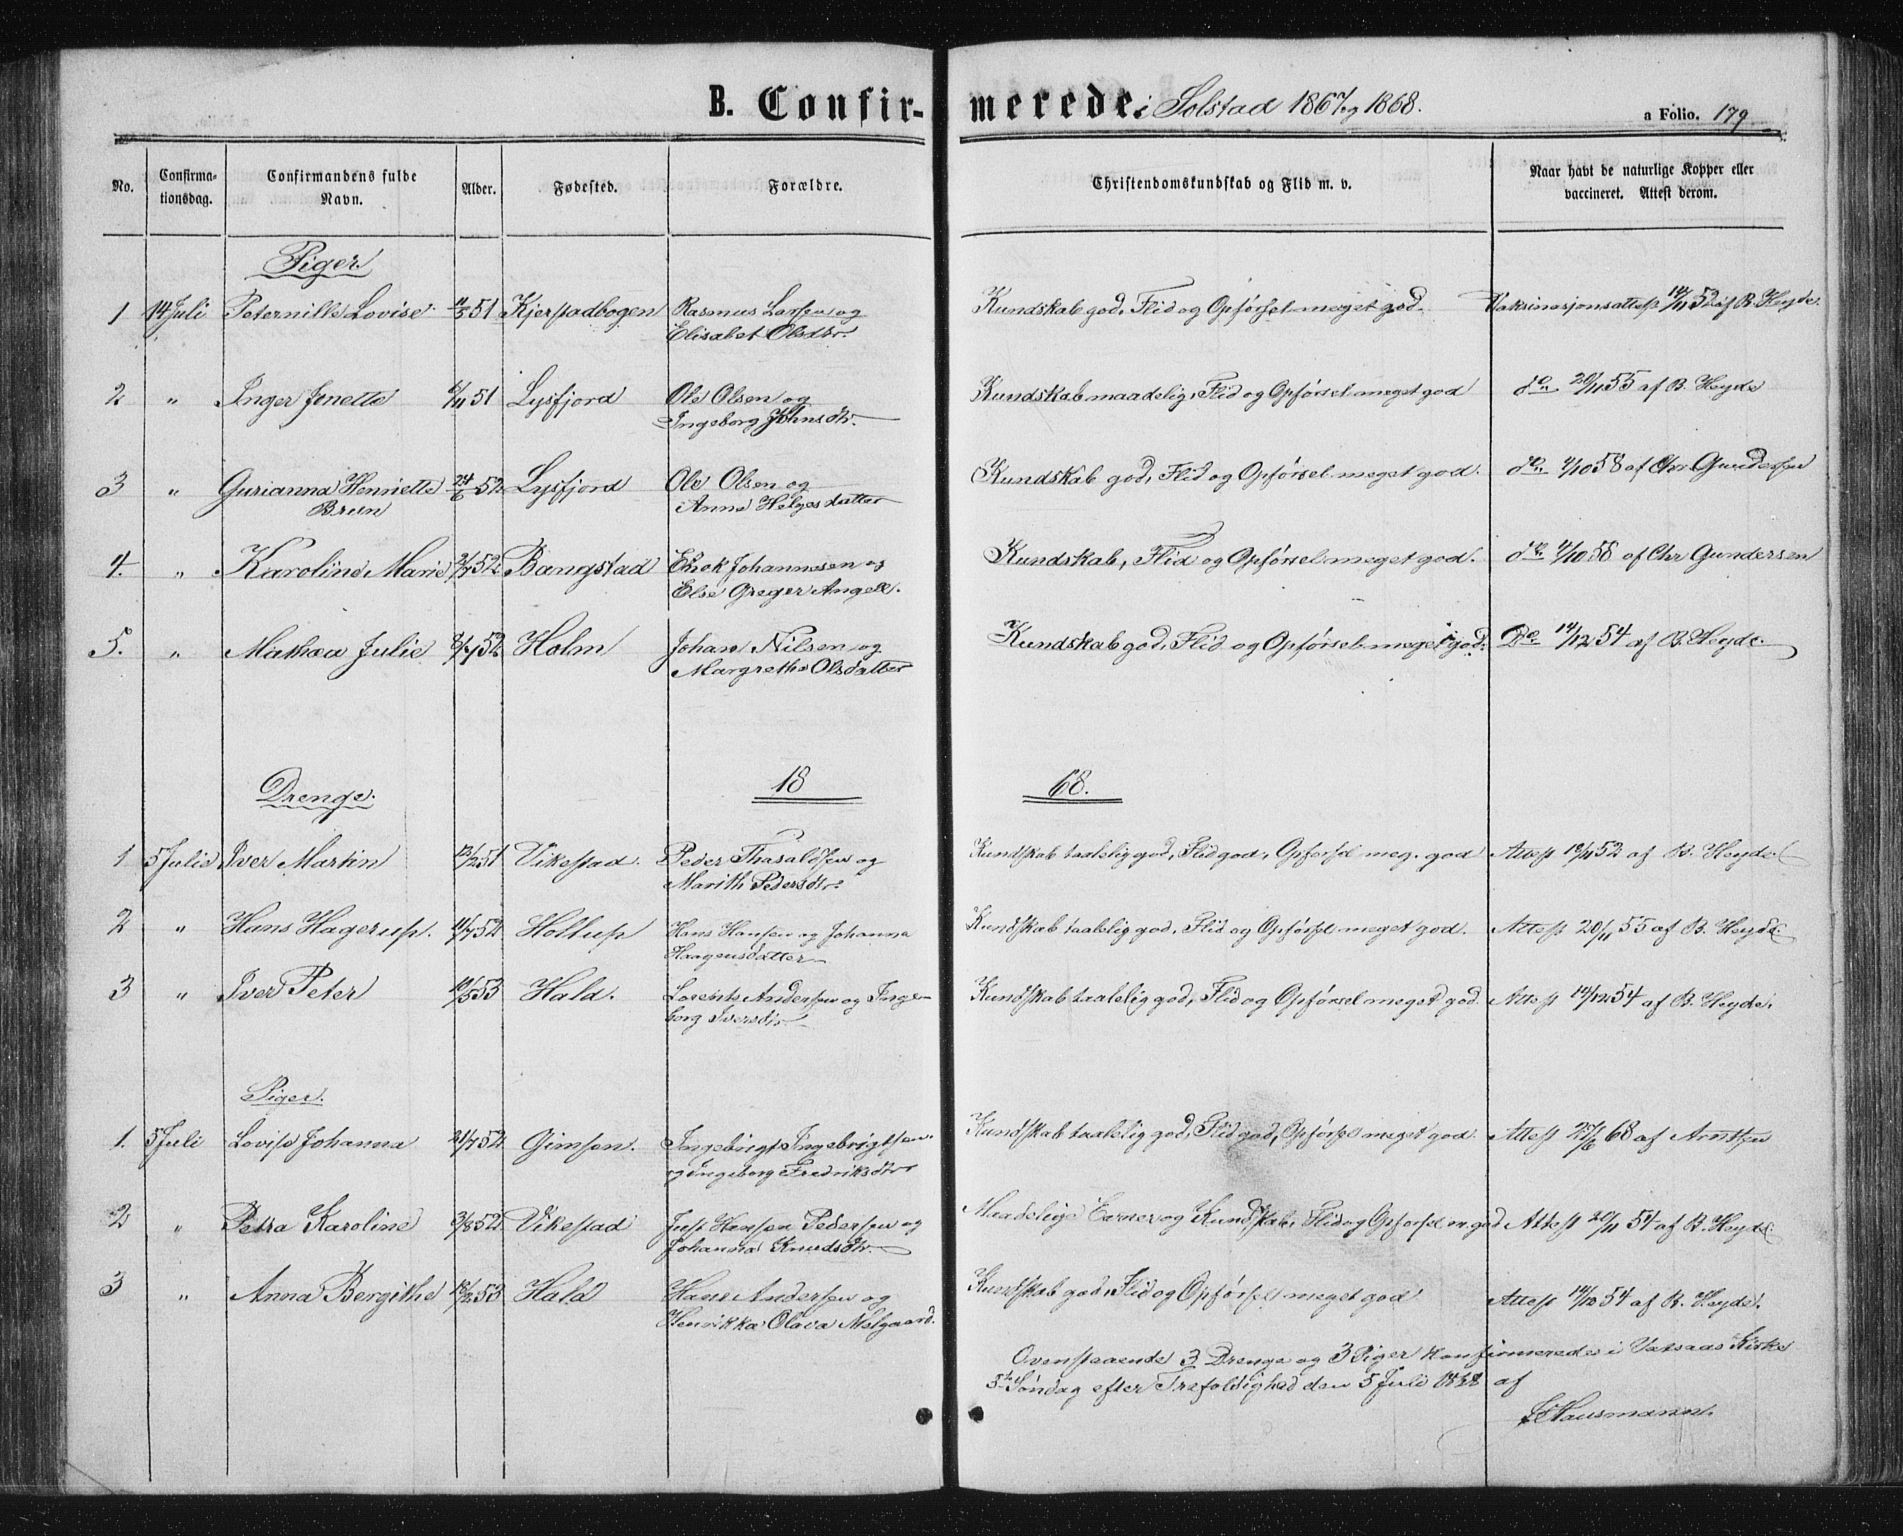 B. Confirmerede i Solstad 1867 og 1868. a Folio. 179
No. Confirmationsdag. Confirmandens fulde Navn. Alder. Fødested. Forældre. Christendomskundskab og Flid m. v. Naar havt de naturlige Kopper eller vaccineret. Attest derom.
Piger
1 14 Juli Peternille Lovise 11/5 51 Kjerstadbogen Rasmus Larsen og Kundskab god, Flid og Opførsel meget god. Vaksinasjonsattest 52 af B. Heyde.
Elisabet Olsdtr.
2 " Inger Jonette 6/11 51 Lysfjord Ole Olsen og Kundskab maadelig, Flid og Opførsel meget god do 20/11 55 af B. Heyde
Ingeborg Johnsdtr.
3 " Gurianna Henriette 24/6 52 Lysfjord Ole Olsen og Kundskab god, Flid og Opførsel meget god. do 4/10 58 af Chr Gundersen
Brun Anna Helgesdatter
4. " Karoline Marie 2/7 52 Bangstad Erick Johannesen og Kundskab, Flid og Opførsel meget god. do 4/10 58 af Chr Gundersen
Else Greger Angell.
5. " Mathea Julie 52 Holm Johan Nilsen og Kundskab god, Flid og Opførsel meget god. Do 14/12 54 af B. Heyde.
Margrethe Olsdatter
Drenge. 18 68.
1 5 Julie Iver Martin 13/12 51 Vikestad. Peder Thasaldsen og Kundskab taalelig god, Flid god, Opførsel meg. god Attest 19/11 52 af B. Heyde.
Marith Pedersdtr.
2 " Hans Hagerup. 11/7 52 Holtup Hans Hansen og Johanna Kundskab taalelig god, Flid og Opførsel meget god. Attest 20/11 55 af B. Heyde.
Haagensdatter
3 " Iver Peter 10/5 53 Hald. Lorents Andersen og Inge- Kundskab taalelig god, Flid og Opførsel meget god. Attest 14/12 54 af B. Heyde.
borg Iversdtr
Piger.
1. 5 Juli Lovise Johanna 21/7 52 Gimsen. Ingebrigt Ingebrigtsen Kundskab taalelig god, Flid god, Opførsel meget god. Attest 25/6 68 af Arntzen
og Ingeborg Fredriksdtr
2 " Petra Karoline 3/8 52 Vikestad Just Hansen Pedersen og Maadelige Evner og Kundskab, Flid og Opførsel m. god Attest 20/11 54 af B. Heyde
Johanna Knudsdtr.
3 " Anna Bergithe 18/2 53 Hald Hans Andersen og Kundskab god, Flid og Opførsel meget god Attest 14/12 54 af B. Heyde.
Henrikka Olava Melgaard.
Ovenstaaende 3 Drenge og 3 Piger konfirmerede i Vatsaas Kirke
5te Søndag efter Trefoldighed den 5 Juli 1868 af
Hausmann.